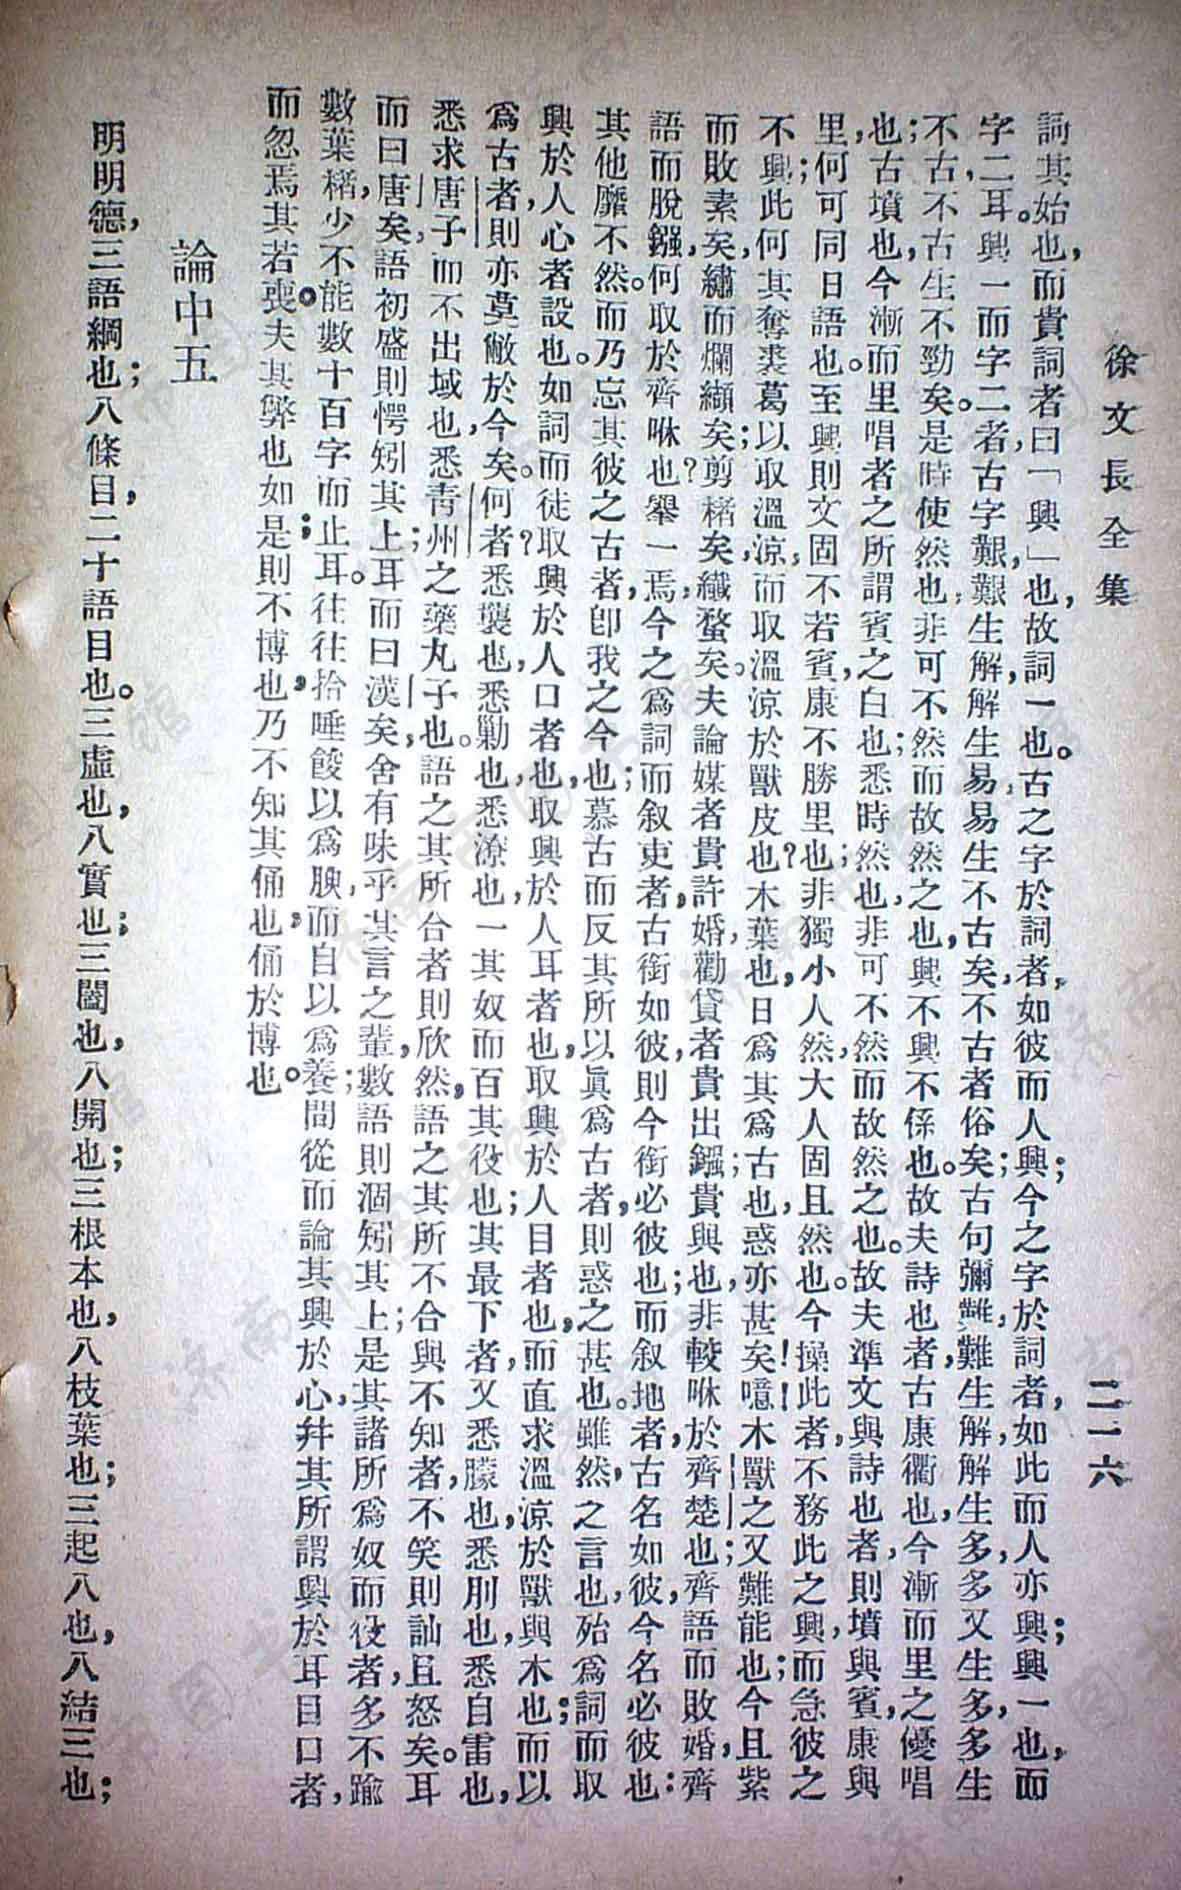 徐文長全集
二一六
詞其始也，而貴詞者曰「興」也，故詞一也。古之字於詞者，如彼而人興；今之字於詞者，如此而人亦興；興一也，而
字二耳。興一而字二者，古字艱，艱生解，解生易，易生不古矣，不古者俗矣；古句彌難，難生解，解生多，多又生多，多生
不古；不古生不勁矣。是時使然也，非可不然而故然之也，興不興不係也。故夫詩也者，古康衢也，今漸而里之優唱
也；古墳也，今漸而里唱者之所謂賓之白也；悉時然也，非可不然而故然之也。故夫準文與詩也者，則墳與賓，康與
里，何可同日語也。至興則文固不若賓，康不勝里也，非獨小人然，大人固且然也。今操此者，不務此之興，而急彼之
不興；此何其奪裘葛以取溫涼，而取溫涼於獸皮也？木葉也，日爲其爲古也，惑亦甚矣！噫！木獸之又難能也；今且紫
而敗素矣，繡而爛纈矣；剪楮矣，纖蝥矣。夫論媒者貴許婚，勸貸者貴出鏹，貴與也；非較咻於齊楚也；齊語而敗婚，齊
語而脫鏹，何取於齊咻也？舉一焉，今之爲詞而叙吏者，古銜如彼，則今銜必彼也；而叙地者，古名如彼，今名必彼也：
其他靡不然。而乃忘其彼之古者，卽我之今也；慕古而反其所以眞爲古者，則惑之甚也。雖然，之言也，殆爲詞而取
興於人心者設也。如詞而徒取興於人口者也，取興於人耳者也，取興於人目者也，而直求溫涼於獸與木也；而以
爲古者，則亦莫敝於今矣。何者？悉襲也，悉勦也，悉潦也，一其奴而百其役也；其最下者，又悉朦也，悉刖也，悉自雷也，
悉求唐子而不出域也，悉青州之藥丸子也。語之其所合者則欣然，語之其所不合與不知者，不笑則訕且怒矣。耳
而曰唐矣，語初盛則愕矧其上耳；而曰漢矣，舍有味乎其言之輩，數語則涸矧其上；是其諸所爲奴而役者，多不踰
數葉楮，少不能數十百字而止耳。往往拾唾餕以爲腴，而自以爲養；間從而論其興於心，幷其所謂興於耳目口者，
而忽焉其若喪。夫其弊也如是；則不博也，乃不知其俑也，俑於博也。
論中五
明明德，三語綱也；八條目，二十語目也。三虛也，八實也；三闔也，八開也；三根本也，八枝葉也；三起八也，八結三也；